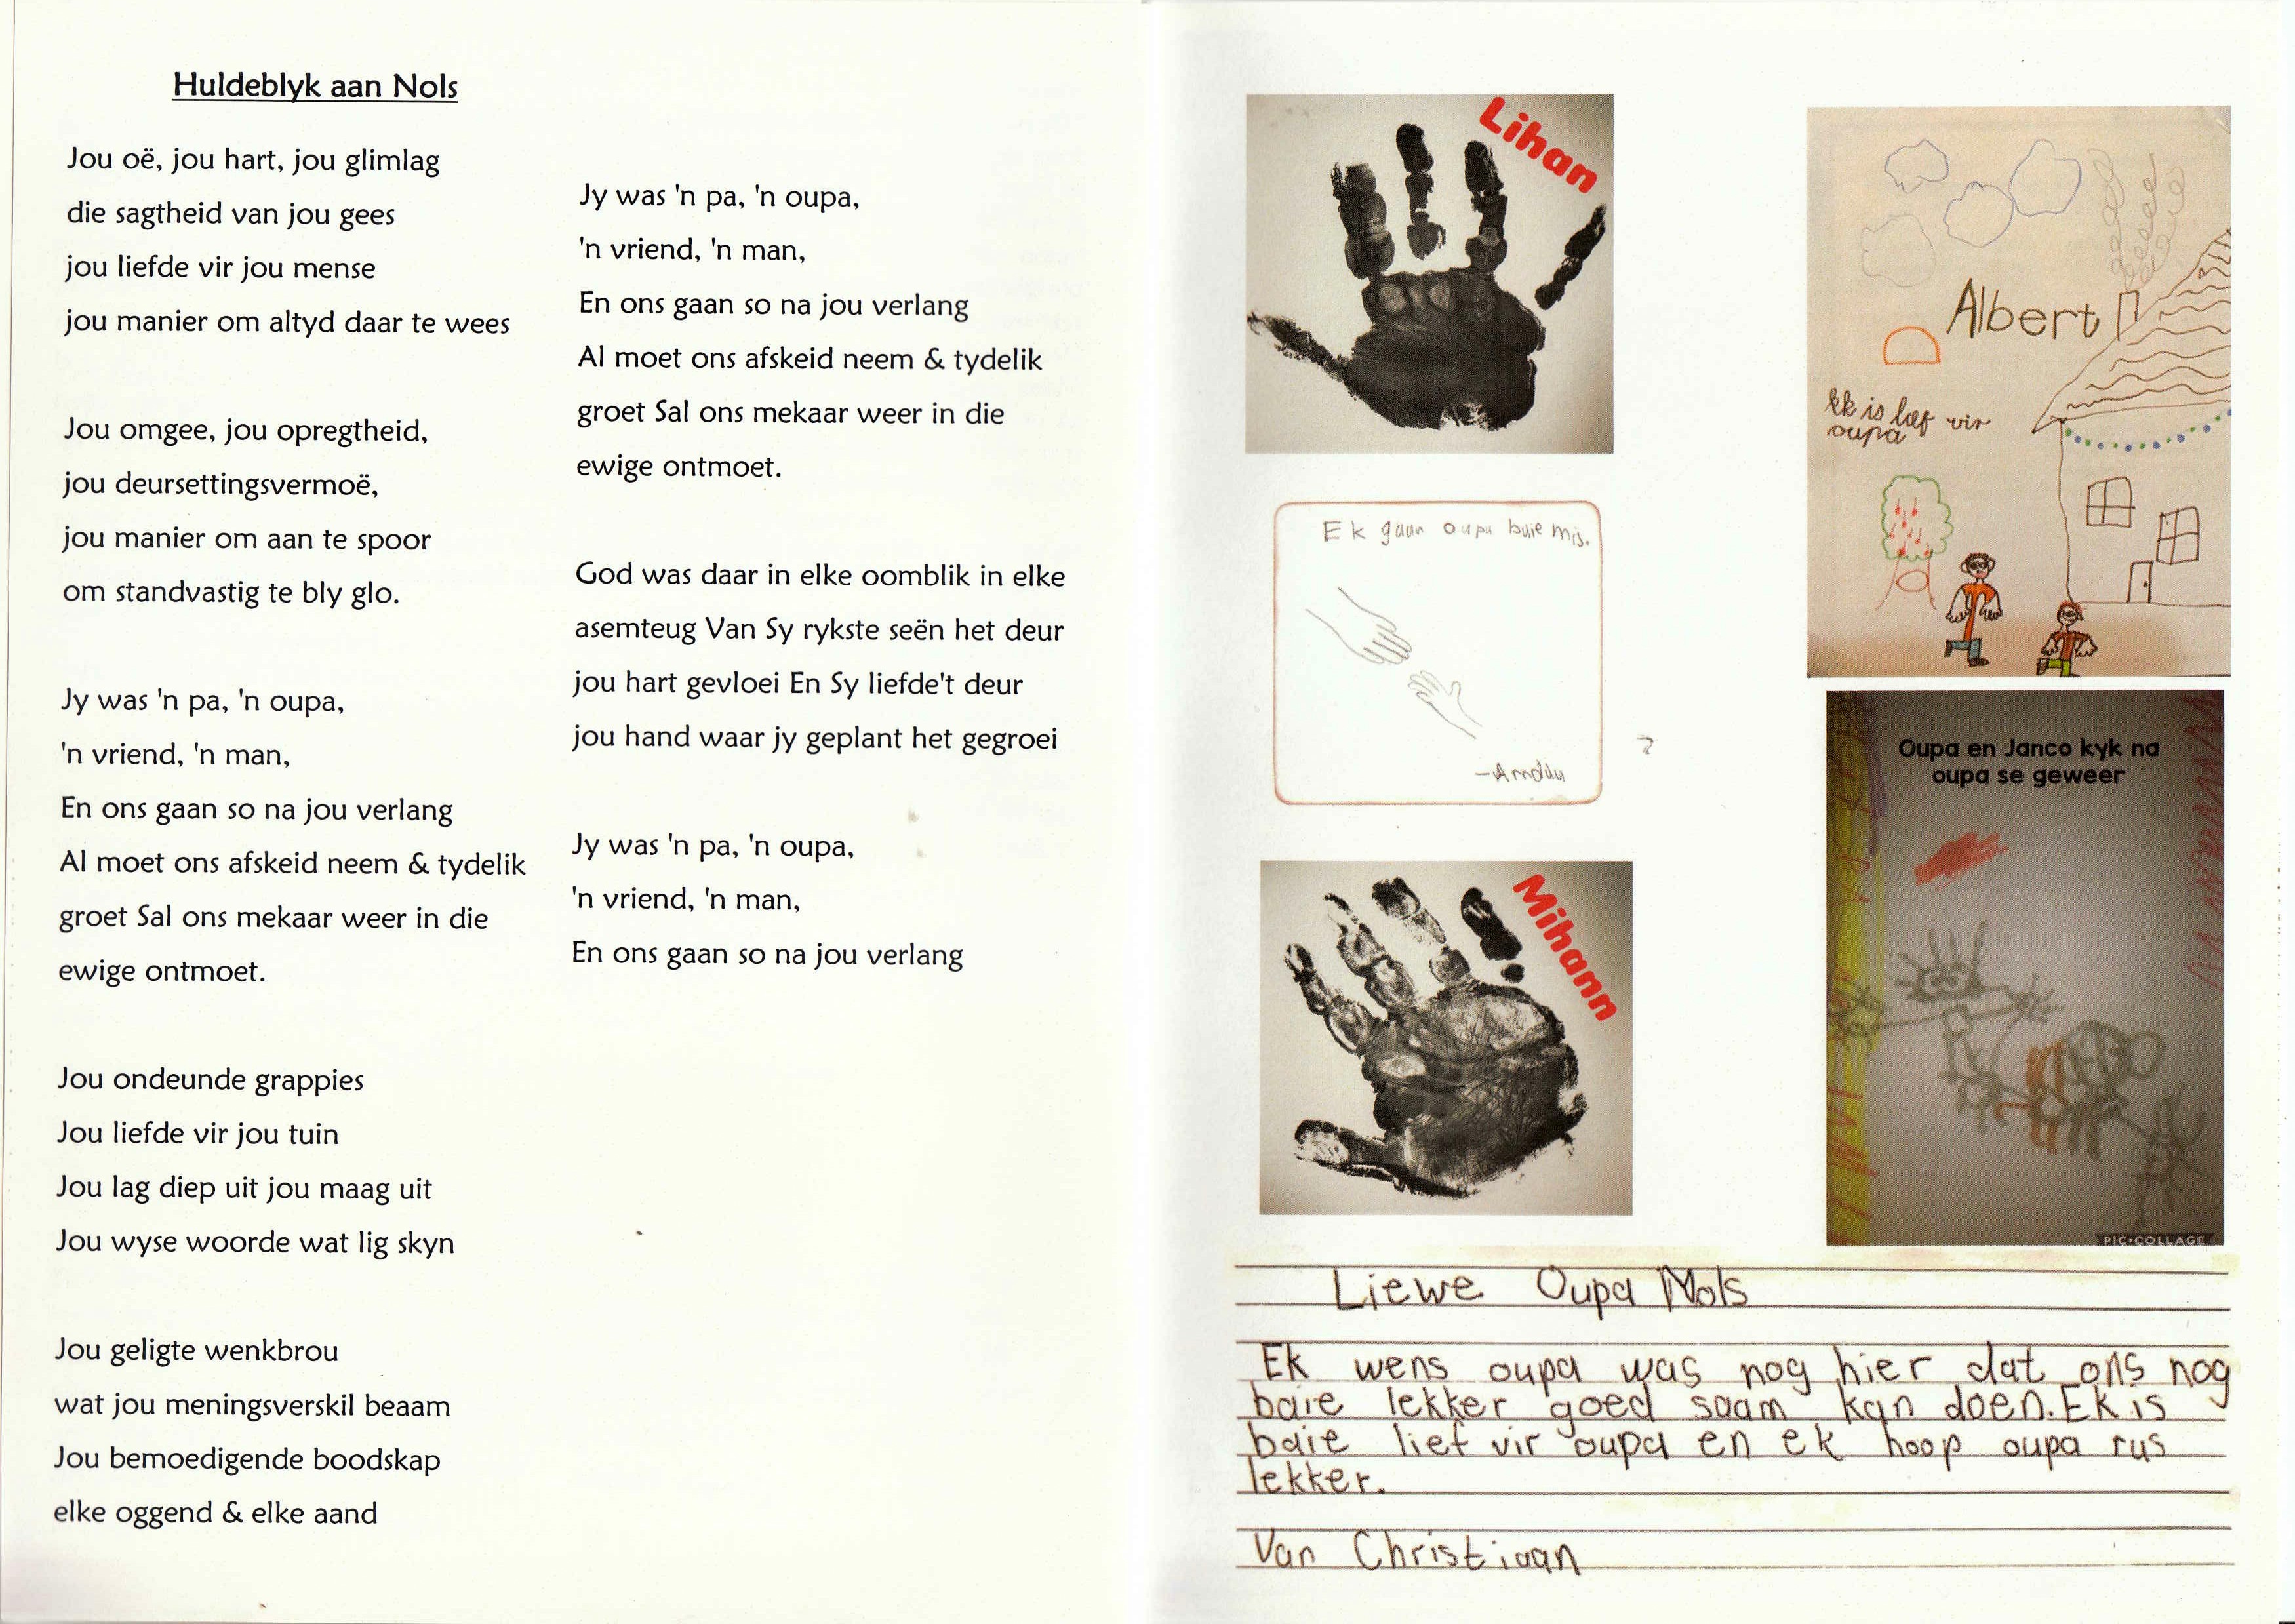 Huldeblyk aan Nols
Jou oë, jou hart, jou glimlag
die sagtheid van jou gees
jou liefde vir jou mense
jou manier om altyd daar te wees
Jou omgee, jou opregtheid,
jou deursettingsvermoë,
jou manier om aan te spoor
om standvastig te bly glo.
Jy was 'n pa, 'n oupa,
'n vriend, 'n man,
En ons gaan so na jou verlang
Al moet ons afskeid neem & tydelik
groet Sal ons mekaar weer in die
ewige ontmoet.
Jou ondeunde grappies
Jou liefde vir jou tuin
Jou lag diep uit jou maag uit
Jou wyse woorde wat lig skyn
Jou geligte wenkbrou
wat jou meningsverskil beaam
Jou bemoedigende boodskap
elke oggend & elke aand
Jy was 'n pa, 'n oupa,
'n vriend, 'n man,
En ons gaan so na jou verlang
Al moet ons afskeid neem & tydelik
groet Sal ons mekaar weer in die
ewige ontmoet.
God was daar in elke oomblik in elke
asemteug Van Sy rykste seën het deur
jou hart gevloei En Sy liefde't deur
jou hand waar jy geplant het gegroei
Jy was 'n pa, 'n oupa,
'n vriend, 'n man,
En ons gaan so na jou verlang
Lihan
Ek gaan oupa baie mis.
Mihann
Albert
Ek is lief vir
oupa
Oupa en Janco kyk na
oupa se geweer
PIC•COLLAGE
Liewe Oupa Nols
Ek wens oupa was nog hier dat ons nog
baie lekker goed saam kan doen. Ek is
baie lief vir oupa en ek hoop oupa rus
lekker.
Van Christiaan